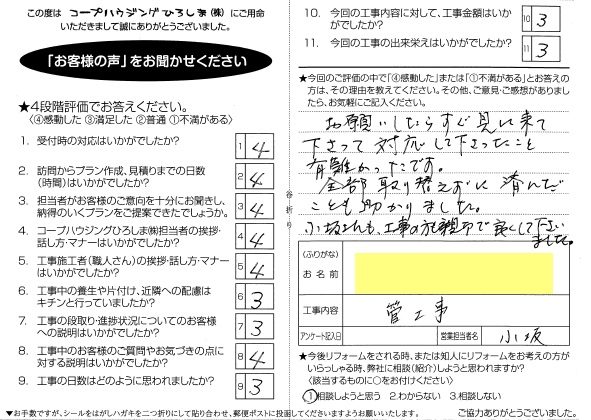 この度は コープハウジングひろしま(株) にご用命
いただきまして誠にありがとうございました。
「お客様の声」をお聞かせください
★4段階評価でお答えください。
〈④感動した ③満足した ②普通 ①不満がある〉
1. 受付時の対応はいかがでしたか? 1 4
2. 訪問からプラン作成、見積りまでの日数
(時間)はいかがでしたか? 2 4
3. 担当者がお客様のご意向を十分にお聞きし、
納得のいくプランをご提案できたでしょうか。 3 4
4. コープハウジングひろしま㈱担当者の挨拶・
話し方・マナーはいかがでしたか? 4 4
5. 工事施工者(職人さん)の挨拶・話し方・マナー
はいかがでしたか? 5 4
6. 工事中の養生や片付け、近隣への配慮は
キチンと行っていましたか? 6 3
7. 工事の段取り・進捗状況についてのお客様
への説明はいかがでしたか? 7 3
8. 工事中のお客様のご質問やお気づきの点に
対する説明はいかがでしたか? 8 4
9. 工事の日数はどのように思われましたか? 9 3
▼お手数ですが、シールをはがしハガキを二つ折りにして貼り合わせ、郵便ポストに投函してくださいますようお願いいたします。
谷折り
10. 今回の工事内容に対して、工事金額はいか
がでしたか? 10 3
11. 今回の工事の出来栄えはいかがでしたか? 11 3
★今回のご評価の中で「④感動した」または「①不満がある」とお答えの
方は、その理由を教えてください。その他、ご意見・ご感想がありました
ら、お気軽にご記入ください。
お願いしたらすぐ見に来て
下さって対応して下さったこと
有難かったです。
全部取り替えずに済んだ
ことも助かりました。
小坂さんも、工事の方も親切で良くして下さい
ました。
(ふりがな)
お名前
工事内容 管工事
アンケート記入日 営業担当者名 小坂
★今後リフォームをされる時、または知人にリフォームをお考えの方が
いらっしゃる時、弊社に相談(紹介)しようと思われますか?
〈該当するものに○をお付けください〉
1.相談しようと思う 2.わからない 3.相談しない
ご協力ありがとうございました。